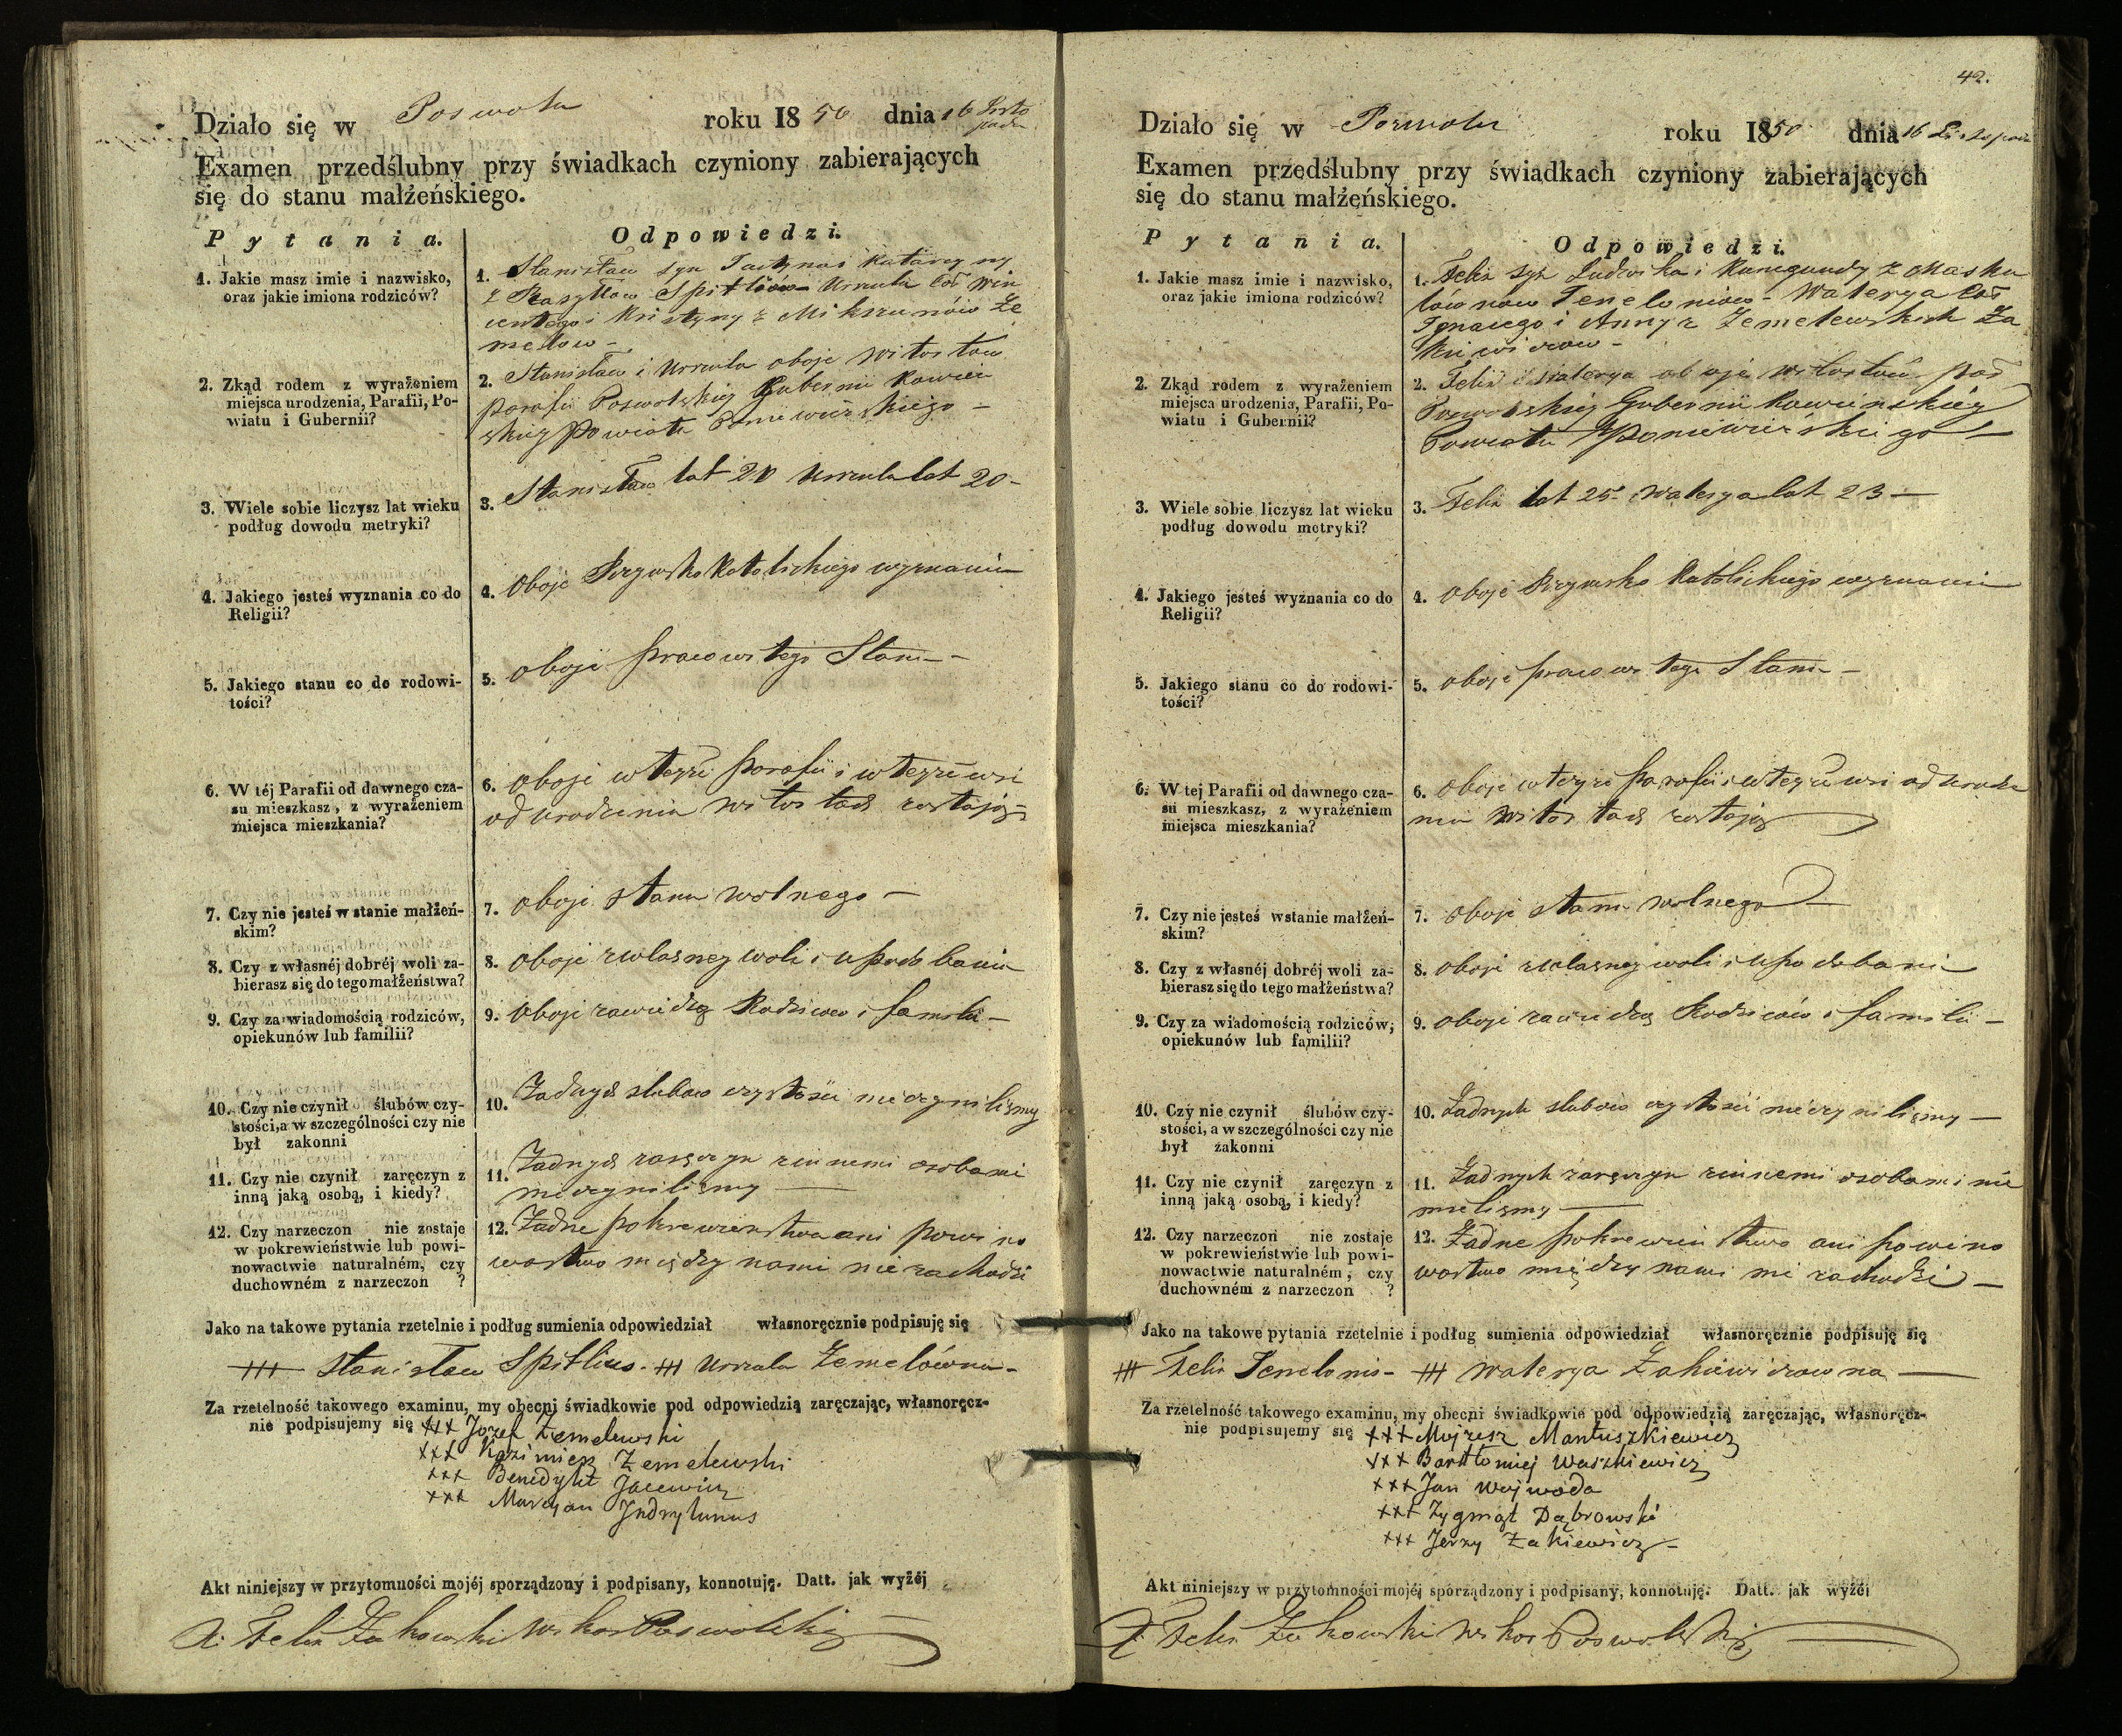 Działo się w Poswolu roku 1850 dnia 16 Listo
pada
Examen przedślubny przy świadkach czyniony zabierających
się do stanu małżeńskiego.
Pytania. Odpowiedzi.
1. Jakie masz imie i nazwisko,
oraz jakie imiona rodziców?
1. Stanisław syn i Katarzyny
z Spitlów Urszula Cór Win
centego i Kristyny z Mikszunów Że
melow –
2. Zkąd rodem z wyrażeniem
miejsca urodzenia, Parafii, Po-
wiatu i Gubernii?
2. Stanisław i Urszula oboje Witortow
parafii Poswolskiej Gubernii Kowień
skiey Powiatu Poniewieżskiego –
3. Wiele sobie liczysz lat wieku
podług dowodu metryki?
3. Stanisław lat 20 Urszula lat 20 –
4. Jakiego jesteś wyznania co do
Religii?
4. oboje Rzymsko Katolickiego wyznania
5. Jakiego stanu co do rodowi-
tości?
5. oboje pracowitego Stanu –
6. W téj Parafii od dawnego cza-
su mieszkasz, z wyrażeniem
miejsca mieszkania?
6. oboje w teyże parafii i w teyże wsi
od urodzenia Witortach zostają
7. Czy nie jesteś w stanie małżeń-
skim?
7. oboje stanu wolnego –
8. Czy z własnéj dobréj woli za-
bierasz się do tego małżeństwa?
8. oboje z własney woli i upodobania
9. Czy za wiadomością rodziców,
opiekunów lub familii?
9. oboje za wiedzą Rodzicow i familii –
10. Czy nie czynił ślubów czy-
stości, a w szczególności czy nie
był zakonni
10. Żadnych slubow czystości nie czynilismy
11. Czy nie czynił zaręczyn z
inną jaką osobą, i kiedy?
11. Żadnych zaręczyn z innemi osobami
nieczynilismy –
12. Czy narzeczon nie zostaje
w pokrewieństwie lub powi-
nowactwie naturalném, czy
duchowném z narzeczon ?
12. Żadne pokrewieństwo ani powino
wactwo między nami nie zachodzi
Jako na takowe pytania rzetelnie i podług sumienia odpowiedział własnoręcznie podpisuję się
+++ Stanisław Spitlius. +++ Urszula Żemelówna –
Za rzetelność takowego examinu, my obecni świadkowie pod odpowiedzią zaręczając, własnoręcz-
nie podpisujemy się +++ Jozef Żemelewski
+++ Kazimierz Żemelewski
+++ Benedykt Jacewicz
+++ Marcyan Indrylunus
Akt niniejszy w przytomności mojéj sporządzony i podpisany, konnotuję. Datt. jak wyżéj
X. Felix Żukowski Wikar Poswolski
42.
Działo się w Poswolu roku 1850 dnia 16 Listopada
Examen przedślubny przy świadkach czyniony zabierających
się do stanu małżeńskiego.
Pytania. Odpowiedzi.
1. Jakie masz imie i nazwisko,
oraz jakie imiona rodziców?
1. Felix syn Ludwika i Kunegundy z Masku
lównow Teneloniow – Waterya Cór
Ignacego i Anny z Żemelewskich Ża
kiewiczow –
2. Zkąd rodem z wyrażeniem
miejsca urodzenia, Parafii, Po-
wiatu i Gubernii?
2. Felix i Waterya oboje Witortow par
Poswolskiéy Gubernii Kowieńskiéy
Powiatu Poniewieżskiego –
3. Wiele sobie liczysz lat wieku
podług dowodu metryki?
3. Felix lat 25 Waterya lat 23 –
4. Jakiego jesteś wyznania co do
Religii?
4. oboje Rzymsko Katolickiego wyznania
5. Jakiego stanu co do rodowi-
tości?
5. oboje pracowitego Stanu –
6. W tej Parafii od dawnego cza-
su mieszkasz, z wyrażeniem
miejsca mieszkania?
6. oboje w teyże parafii i w teyże wsi od urodze
nia Witortach zostają
7. Czy nie jesteś wstanie małżeń-
skim?
7. oboje stanu wolnego –
8. Czy z własnéj dobréj woli za-
bierasz się do tego małżeństwa?
8. oboje z własney woli i upodobania
9. Czy za wiadomością rodziców,
opiekunów lub familii?
9. oboje za wiedzą Rodziców i familii –
10. Czy nie czynił ślubów czy-
stości, a w szczególności czy nie
był zakonni
10. Żadnych slubow czystości nieczynilismy –
11. Czy nie czynił zaręczyn z
inną jaką osobą, i kiedy?
11. Żadnych zaręczyn z innemi osobami nie
mielismy –
12. Czy narzeczon nie zostaje
w pokrewieństwie lub powi-
nowactwie naturalném, czy
duchowném z narzeczon ?
12. Żadne pokrewieństwo ani powino
wactwo między nami nie zachodzi –
Jako na takowe pytania rzetelnie i podług sumienia odpowiedział własnoręcznie podpisuję się
+++ Felix Tenelonis – +++ Waterya Żakiewiczowna –
Za rzetelność takowego examinu, my obecni świadkowie pod odpowiedzią zaręczając, własnoręcz-
nie podpisujemy się +++ Mojzesz Mantuszkiewicz
+++ Bartłomiej Waszkiewicz
+++ Jan Wojwoda
+++ Zygmąt Dąbrowski
+++ Jerzy Żakiewicz –
Akt niniejszy w przytomności mojéj sporządzony i podpisany, konnotuję. Datt. jak wyżéj
X. Felix Żukowski Wikar Poswolski